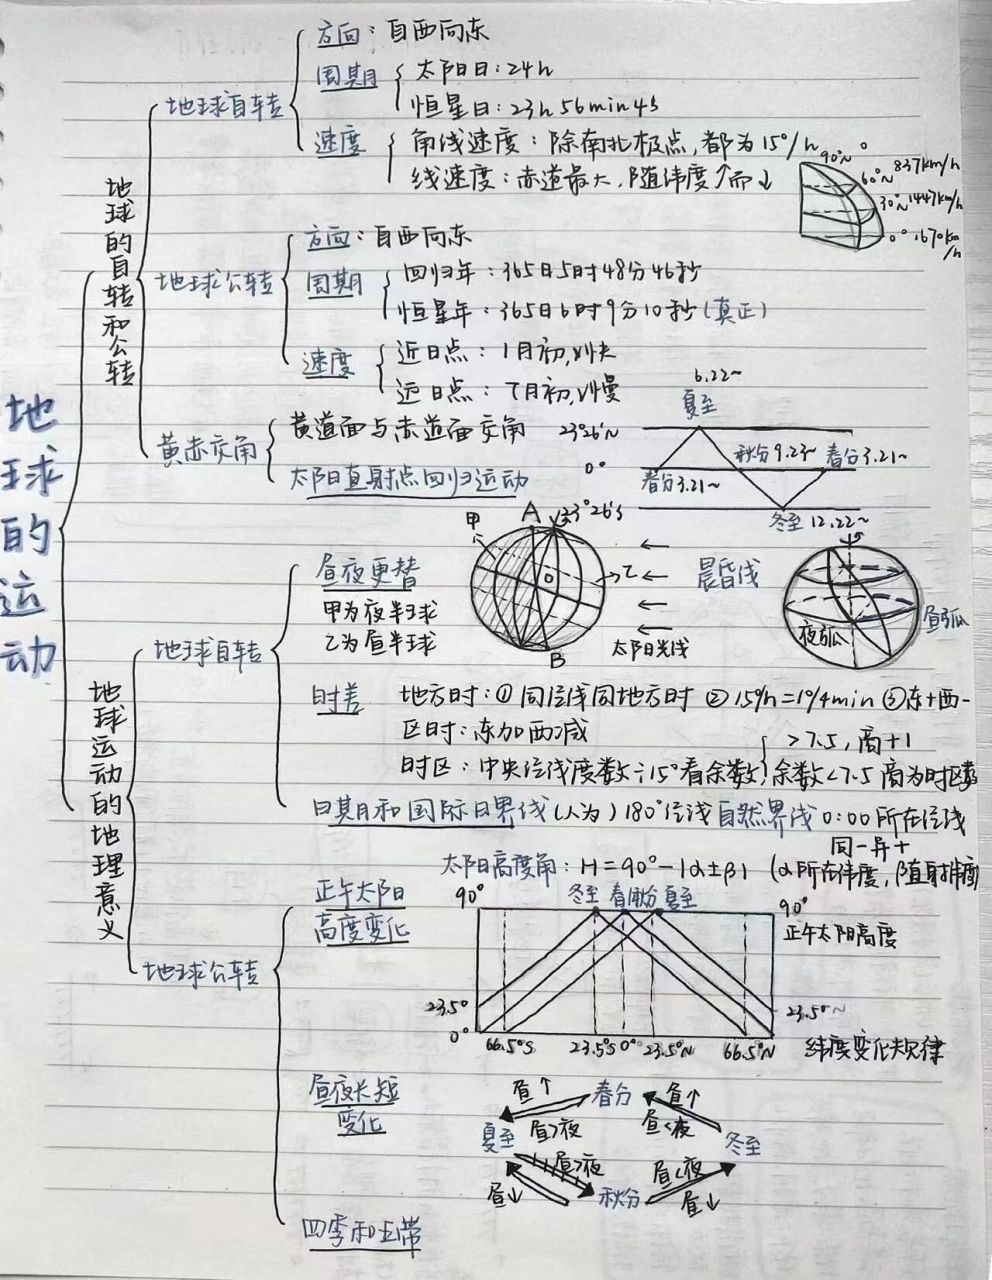 地球的运动
地球的自转和公转
地球自转
方向：自西向东
周期
太阳日：24h
恒星日：23h 56min 4s
速度
角线速度：除南北极点，都为15°/h
线速度：赤道最大，随纬度↑而↓
90°N 0
60°N 837km/h
30°N 1447km/h
0° 1670km/h
地球公转
方向：自西向东
周期
回归年：365日5时48分46秒
恒星年：365日6时9分10秒(真正)
速度
近日点：1月初，V快
远日点：7月初，V慢
黄赤交角
黄道面与赤道面交角
太阳直射点回归运动
6.22~
夏至
23°26′N
秋分9.23~
春分3.21~
0°
春分3.21~
23°26′S
冬至 12.22~
地球运动的地理意义
地球自转
昼夜更替
甲为夜半球
乙为昼半球
甲
A
乙
B
太阳光线
晨昏线
夜弧
昼弧
时差
地方时：① 同经线同地方时 ② 15°/h=1°/4min ③东+西-
区时：东加西减
时区：中央经线度数÷15°看余数
>7.5，商+1
余数<7.5 商为时区数
日期和国际日界线(人为) 180°经线 自然界线 0:00所在经线
地球公转
正午太阳
高度变化
太阳高度角：H=90°-|α±β|
同-异+
(α所在纬度，β直射纬度)
90°
冬至
春秋分
夏至
90°
正午太阳高度
23.5°
23.5°~
0°
66.5°S
23.5°S
0°
23.5°N
66.5°N
纬度变化规律
昼夜长短
变化
昼↑
春分
昼↑
夏至
昼>夜
昼<夜
冬至
昼>夜
昼<夜
昼↓
秋分
昼↓
四季和五带